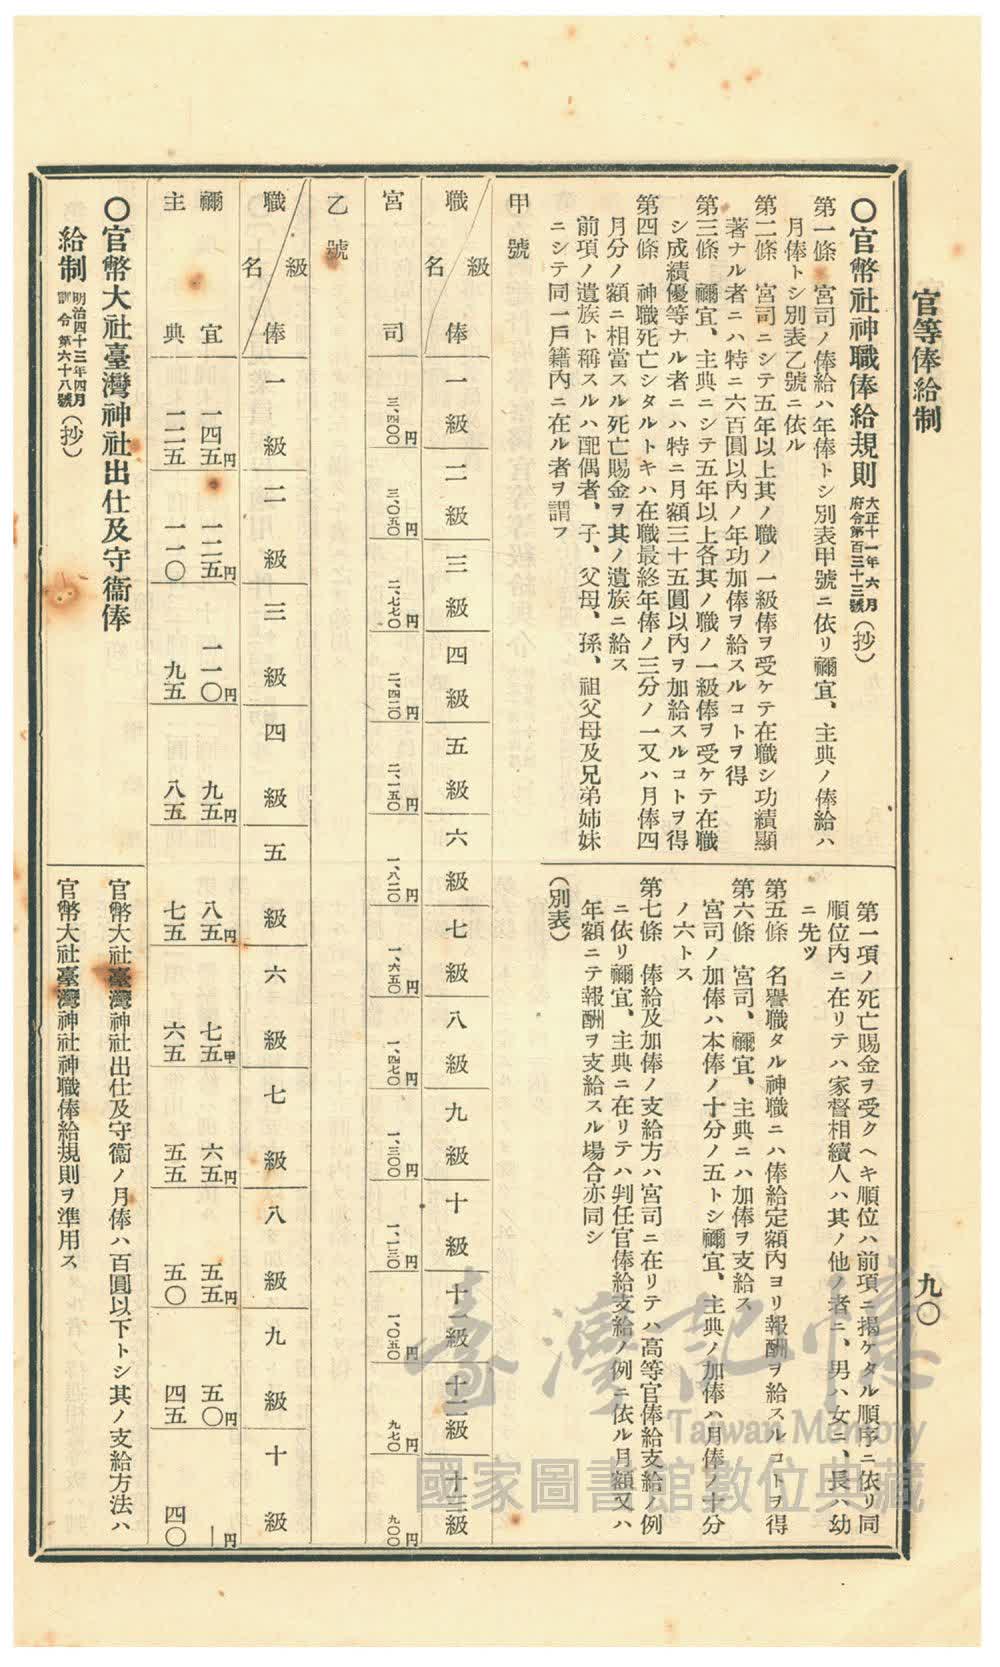 官等俸給制
九〇
〇官幣社神職俸給規則 大正十一年六月 府令第百三十三號 (抄)
第一條　宮司ノ俸給ハ年俸トシ別表甲號ニ依リ禰宜、主典ノ俸給ハ
月俸トシ別表乙號ニ依ル
第二條　宮司ニシテ五年以上其ノ職ノ一級俸ヲ受ケテ在職シ功績顯
著ナル者ニハ特ニ六百圓以內ノ年功加俸ヲ給スルコトヲ得
第三條　禰宜、主典ニシテ五年以上各其ノ職ノ一級俸ヲ受ケテ在職
シ成績優等ナル者ニハ特ニ月額三十五圓以內ヲ加給スルコトヲ得
第四條　神職死亡シタルトキハ在職最終年俸ノ三分ノ一又ハ月俸四
月分ノ額ニ相當スル死亡賜金ヲ其ノ遺族ニ給ス
前項ノ遺族ト稱スルハ配偶者、子、父母、孫、祖父母及兄弟姉妹
ニシテ同一戶籍內ニ在ル者ヲ謂フ
第一項ノ死亡賜金ヲ受クヘキ順位ハ前項ニ揭ケタル順序ニ依リ同
順位內ニ在リテハ家督相續人ハ其ノ他ノ者ニ、男ハ女ニ、長ハ幼
ニ先ツ
第五條　名譽職タル神職ニハ俸給定額內ヨリ報酬ヲ給スルコトヲ得
第六條　宮司、禰宜、主典ニハ加俸ヲ支給ス
宮司ノ加俸ハ本俸ノ十分ノ五トシ禰宜、主典ノ加俸ハ月俸ノ十分
ノ六トス
第七條　俸給及加俸ノ支給方ハ宮司ニ在リテハ高等官俸給支給ノ例
ニ依リ禰宜、主典ニ在リテハ判任官俸給支給ノ例ニ依ル月額又ハ
年額ニテ報酬ヲ支給スル場合亦同シ
(別表)
甲號
職名 級俸 一級 二級 三級 四級 五級 六級 七級 八級 九級 十級 十一級 十二級 十三級
宮司 三、四〇〇円 三、〇五〇円 二、七七〇円 二、四二〇円 二、一五〇円 一、八二〇円 一、六五〇円 一、四七〇円 一、三〇〇円 一、一三〇円 一、〇五〇円 九七〇円 九〇〇円
乙號
職名 級俸 一級 二級 三級 四級 五級 六級 七級 八級 九級 十級
禰宜 一四五円 一二五円 一一〇円 九五円 八五円 七五甲 六五円 五五円 五〇円 ―円
主典 一二五 一一〇 九五 八五 七五 六五 五五 五〇 四五 四〇
〇官幣大社臺灣神社出仕及守衞俸
給制 明治四十三年四月 訓令第六十八號 (抄)
官幣大社臺灣神社出仕及守衞ノ月俸ハ百圓以下トシ其ノ支給方法ハ
官幣大社臺灣神社神職俸給規則ヲ準用ス
臺灣記憶
Taiwan Memory
國家圖書館數位典藏